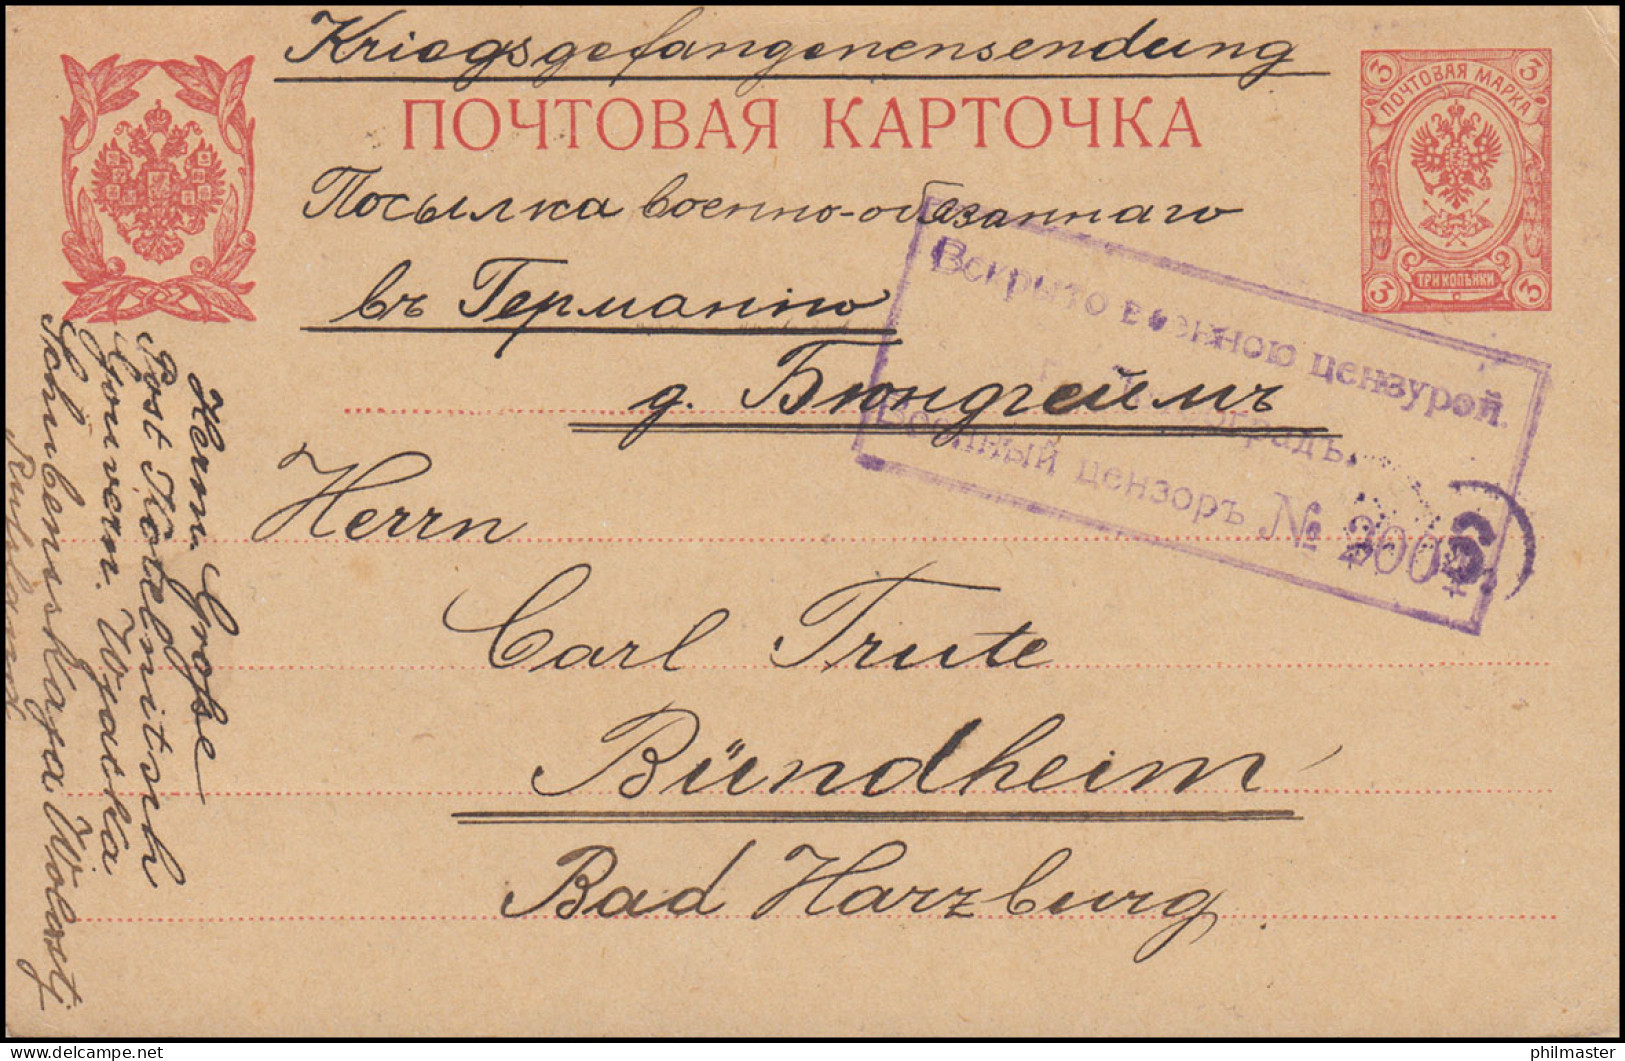 Kriegsgefangenensendung
ПОЧТОВАЯ КАРТОЧКА
3 3
ПОЧТОВАЯ МАРКА
ТРИ КОПѢЙКИ
3 3
Посылка военно-обязаннаго
въ Германію
д. Бюндгеймъ
Вскрыто военною цензурой.
Военный цензоръ №
Herrn
Carl Trute
Bündheim
Bad Harzburg
Herm. Große
Post Kotelnitsch
Gouvern. Wjatka
Schubenskaja Wolostj
Rußland
philmaster